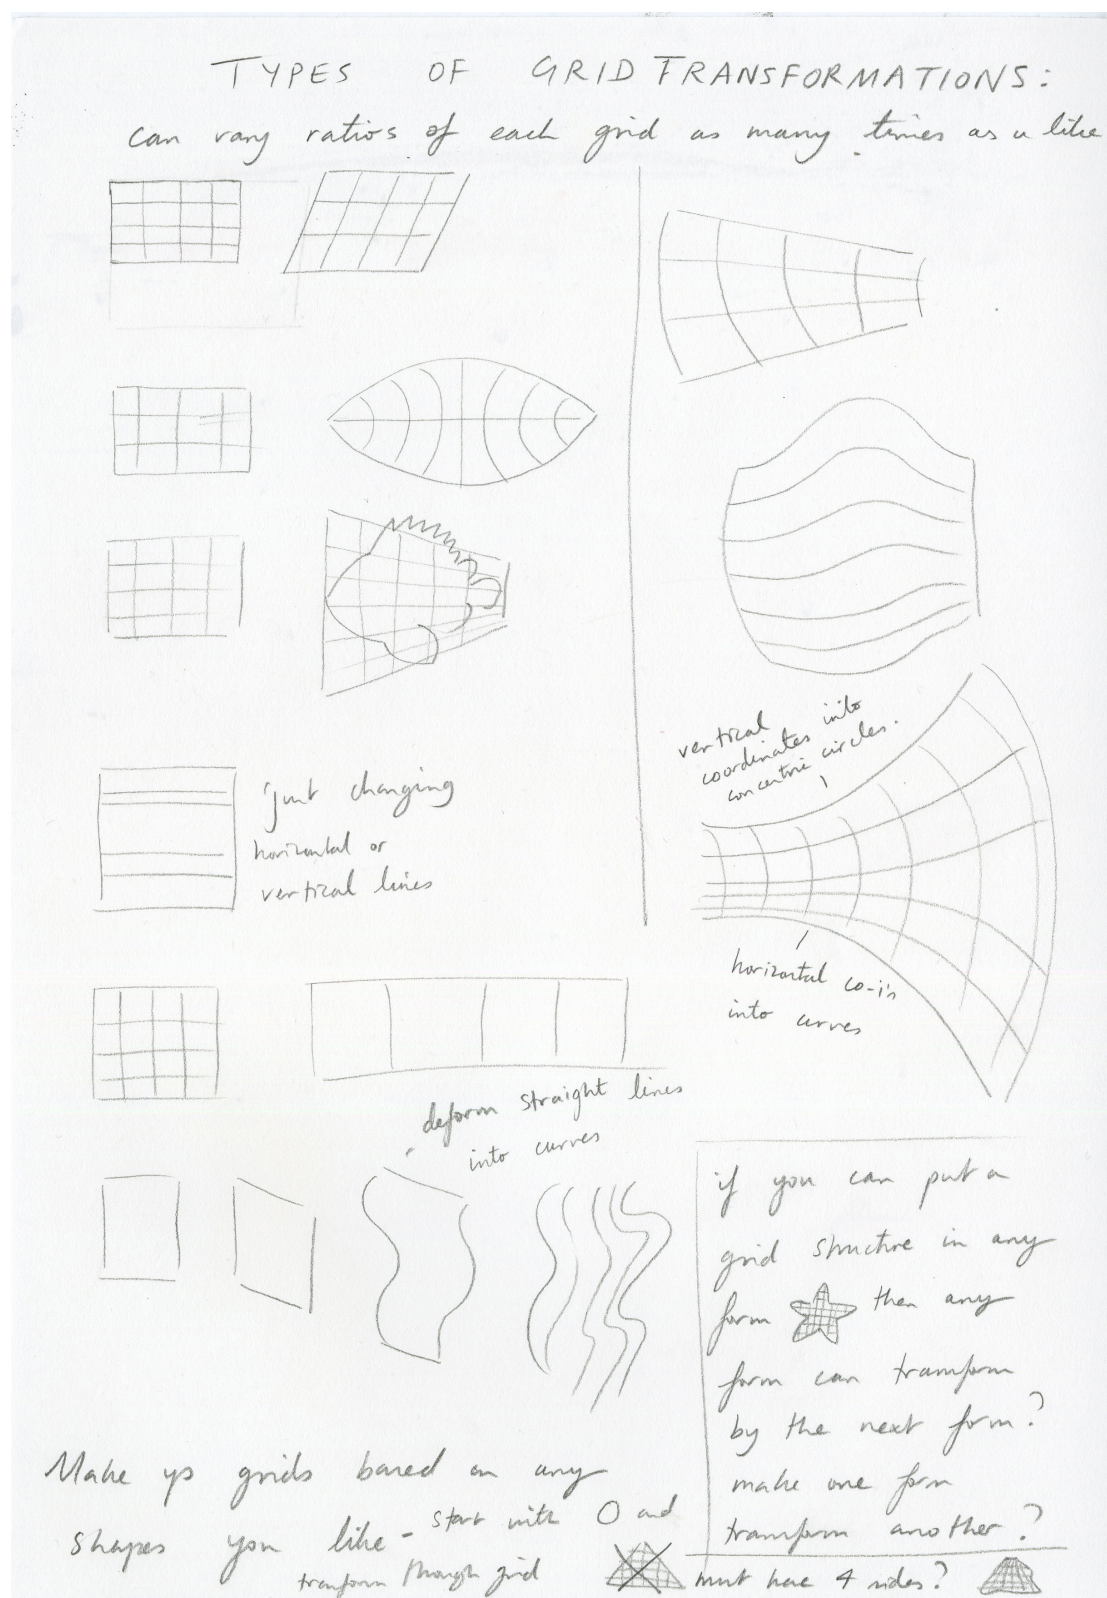 TYPES OF GRID TRANSFORMATIONS:
can vary ratios of each grid as many times as u like
just changing
horizontal or
vertical lines
vertical
coordinates into
concentric circles.
horizontal co-i's
into curves
deform straight lines
into curves
if you can put a
grid structure in any
form then any
form can transform
by the next form?
make one form
transform another?
must have 4 sides?
Make up grids based on any
shapes you like - start with O and
transform through grid